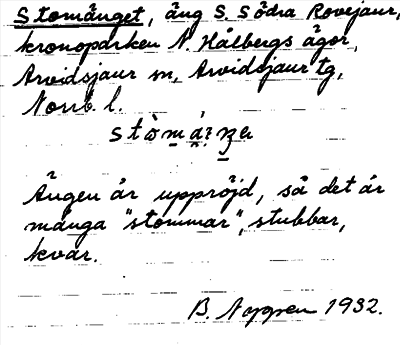 Stomänget, äng S. Södra Rovejaur,
kronoparken N. Hålbergs ägor,
Arvidsjaur sn, Arvidsjaur tg,
Norrb. l.
Ängen är uppröjd, så det är
många "stommar", stubbar,
kvar.
B. 1932.